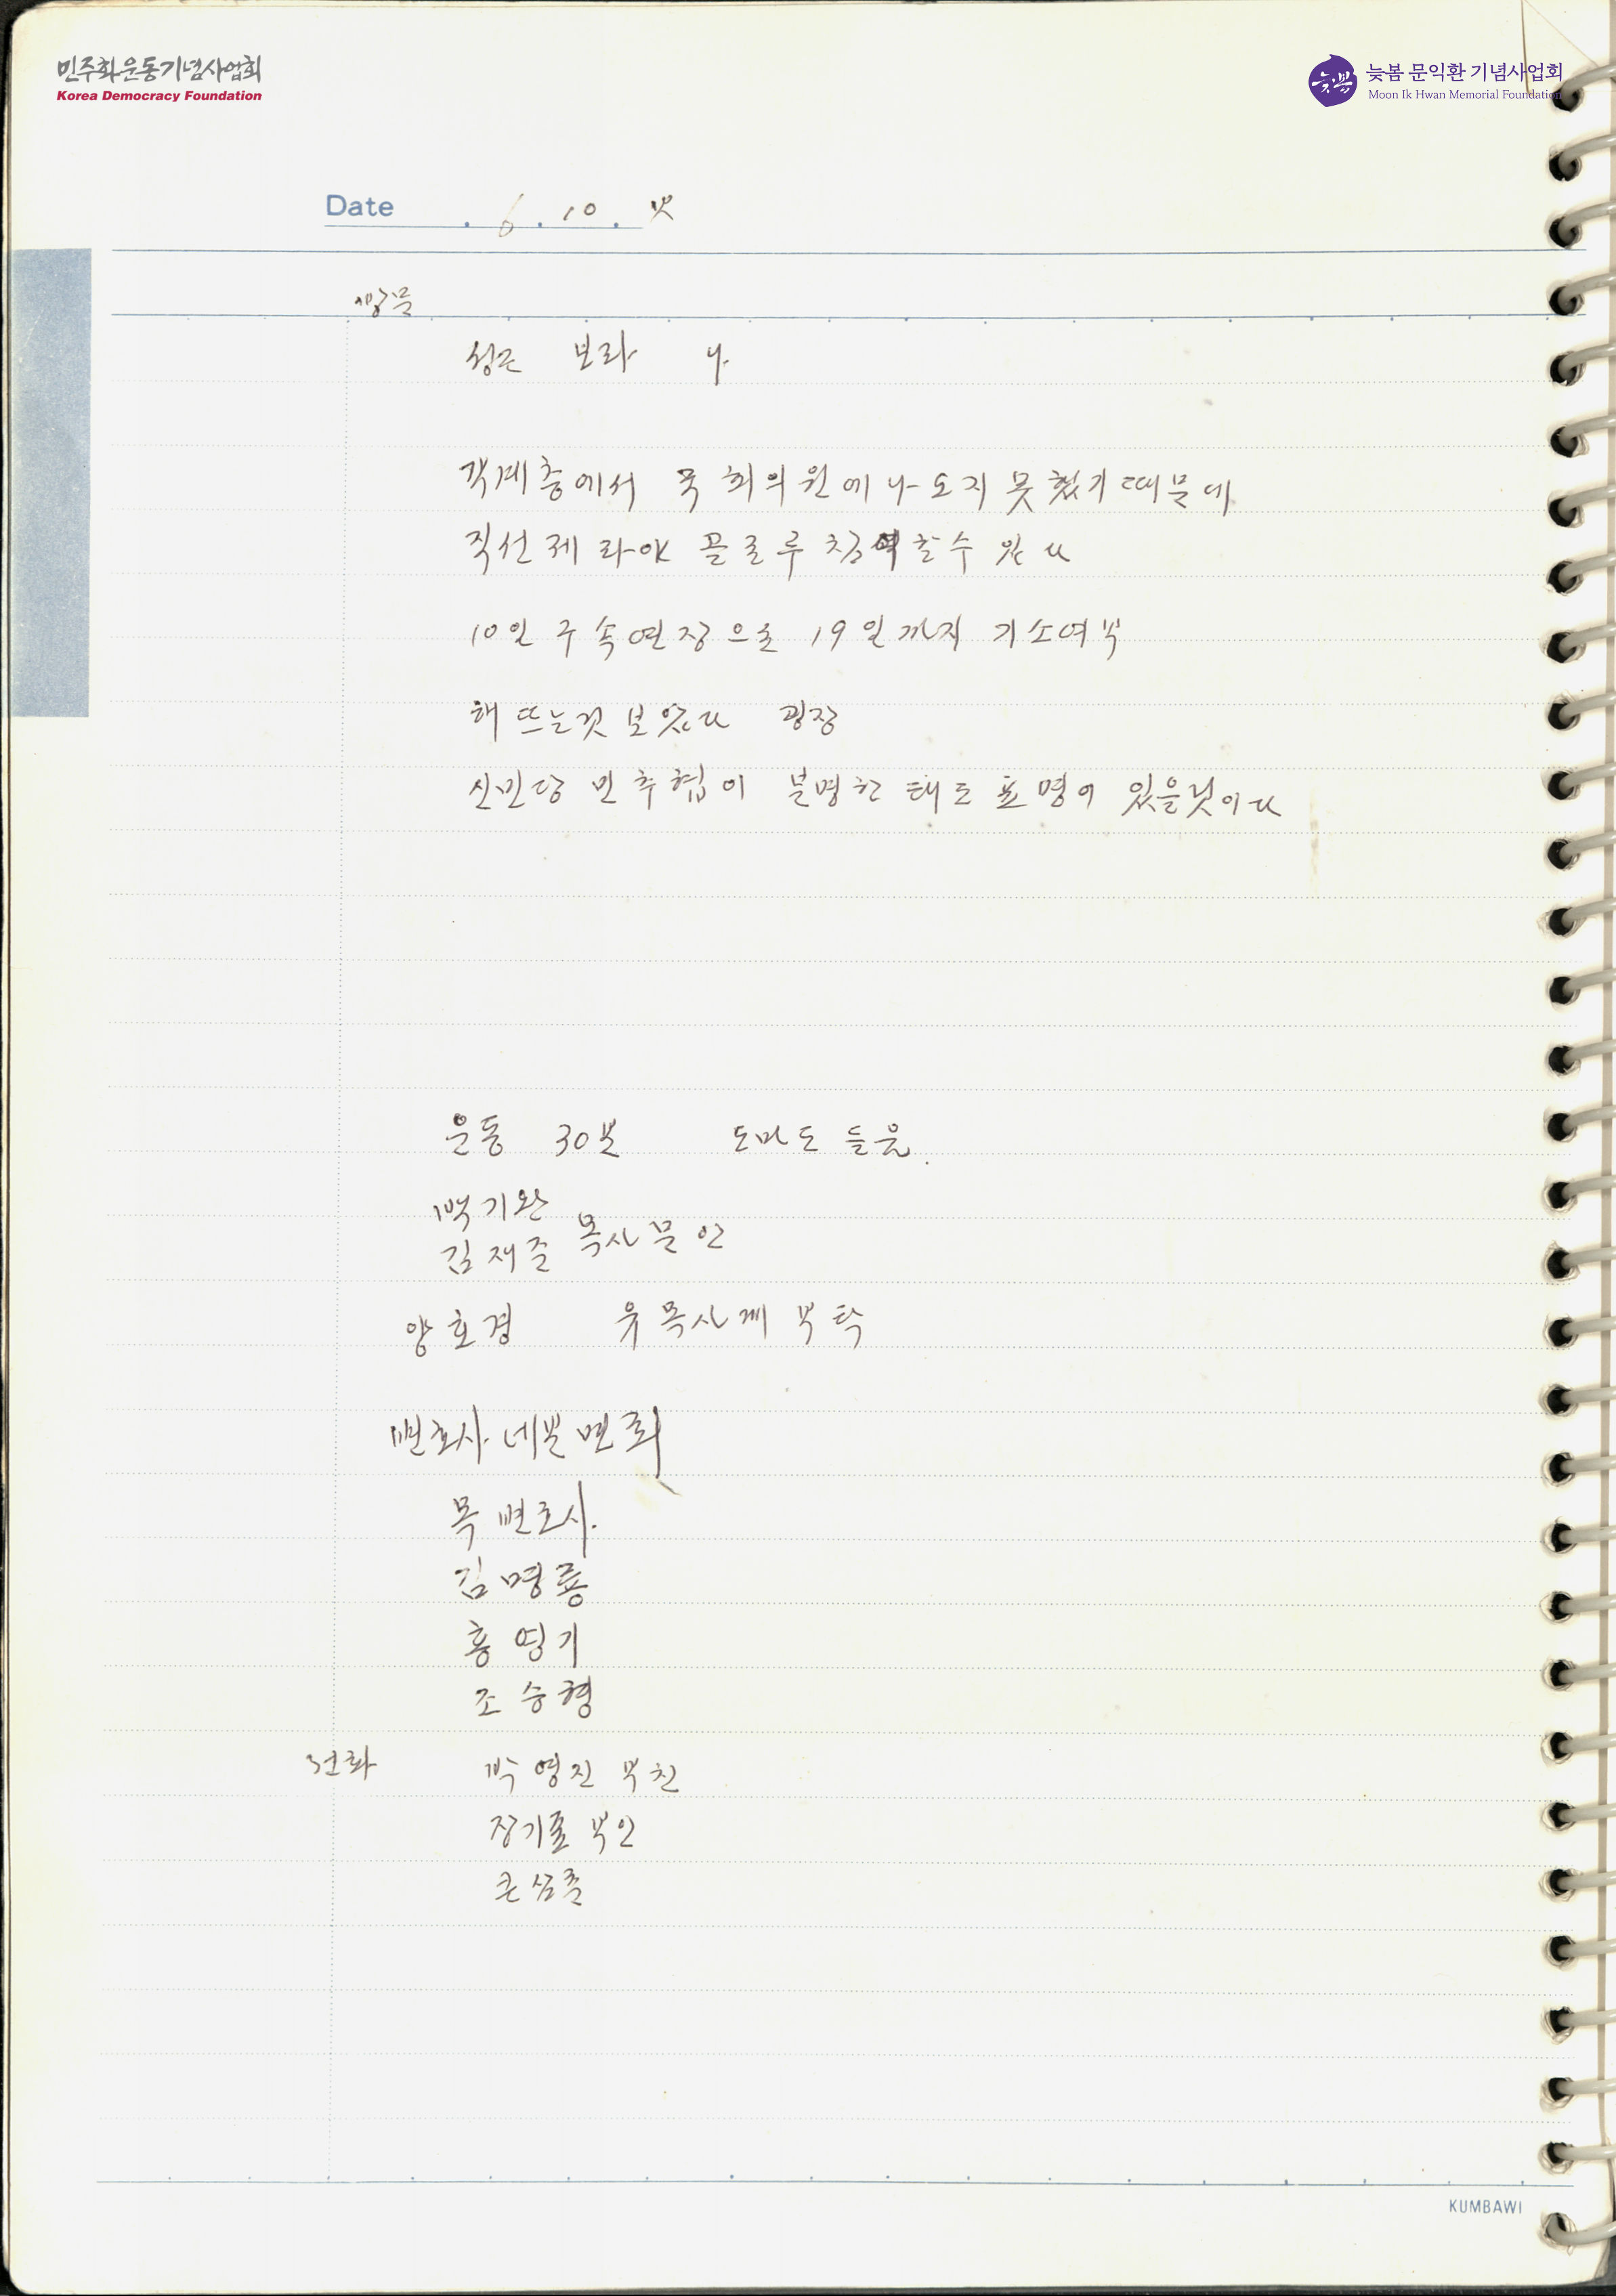 민주화운동기념사업회
Korea Democracy Foundation
늦봄
늦봄 문익환 기념사업회
Moon Ik Hwan Memorial Foundation
Date . 6 . 10 . 火
방문
성근 보라 나
각계층에서 국회의원에 나오지 못했기 때문에
직선제라야 골고루 참여할수 있다
10일 구속연장으로 19일까지 기소여부
해 뜨는것 보았다 광장
신민당 민추협이 분명한 태도 표명이 있을것이다
운동 30분 도마도 들음.
백기완
김재준 목사 문안
양호경 유목사께 부탁
변호사 네분 면회
목 변호사.
김명룡
홍영기
조승형
전화 박영진 부친
장기표 부인
큰삼촌
KUMBAWI